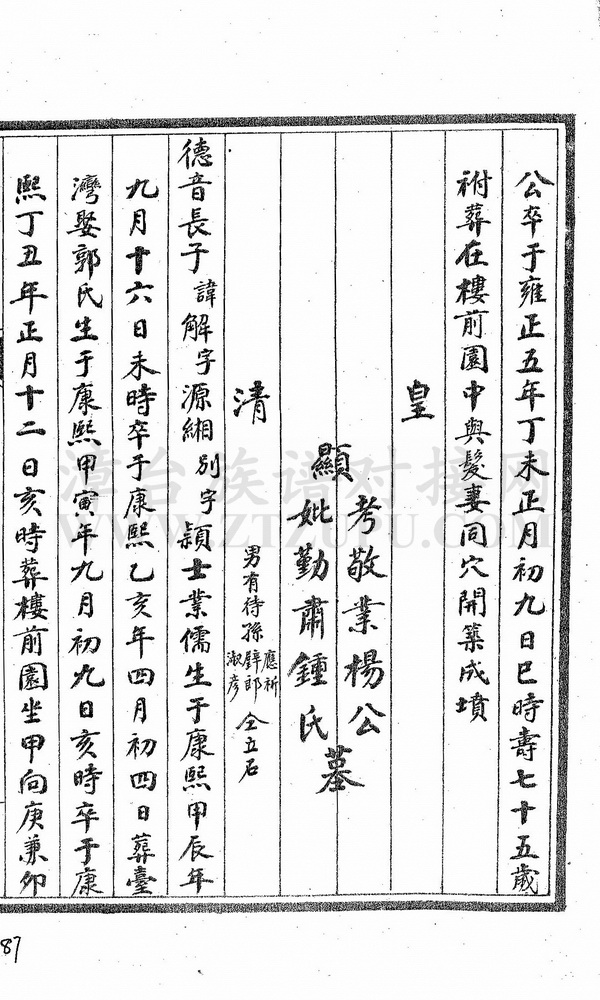 公卒于雍正五年丁未正月初九日巳時壽七十五歲
祔葬在樓前園中與髮妻同穴開築成墳
皇
顯
考敬業楊公
妣勤肅鍾氏
墓
清
男有待孫
應祈
壁郎
淑彥
仝立石
德音長子諱解字源緗別字穎士業儒生于康熙甲辰年
九月十六日未時卒于康熙乙亥年四月初四日葬臺
灣娶郭氏生于康熙甲寅年九月初九日亥時卒于康
熙丁丑年正月十二日亥時葬樓前園坐甲向庚兼卯
87
漳台族谱对接网
WWW.ZTZUPU.COM